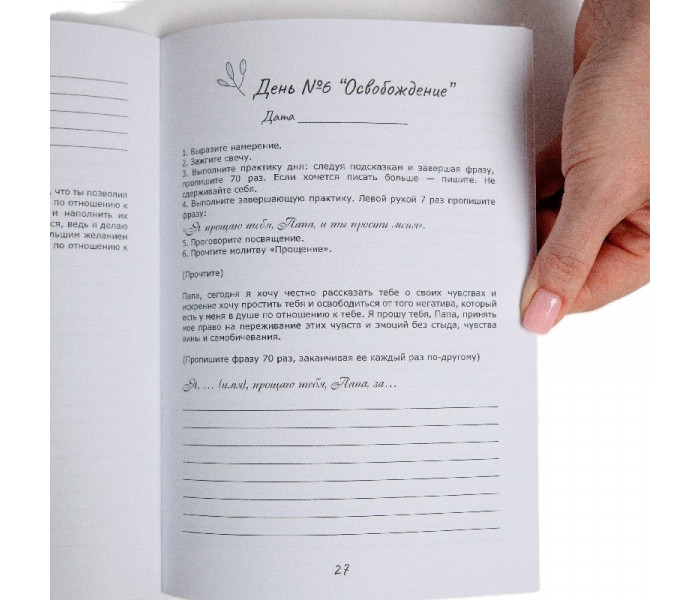 , что ты позволил
по отношению к
и наполнить их
ся, ведь я делаю
льшим желанием
по отношению к
День №6 “Освобождение”
Дата
1. Выразите намерение.
2. Зажгите свечу.
3. Выполните практику дня: следуя подсказкам и завершая фразу,
пропишите 70 раз. Если хочется писать больше — пишите. Не
сдерживайте себя.
4. Выполните завершающую практику. Левой рукой 7 раз пропишите
фразу:
«Я прощаю тебя, Папа, и ты прости меня».
5. Проговорите посвящение.
6. Прочтите молитву «Прощение».
(Прочтите)
Папа, сегодня я хочу честно рассказать тебе о своих чувствах и
искренне хочу простить тебя и освободиться от того негатива, который
есть у меня в душе по отношению к тебе. Я прошу тебя, Папа, принять
мое право на переживание этих чувств и эмоций без стыда, чувства
вины и самобичевания.
(Пропишите фразу 70 раз, заканчивая ее каждый раз по-другому)
Я, ... (имя), прощаю тебя, Папа, за...
27